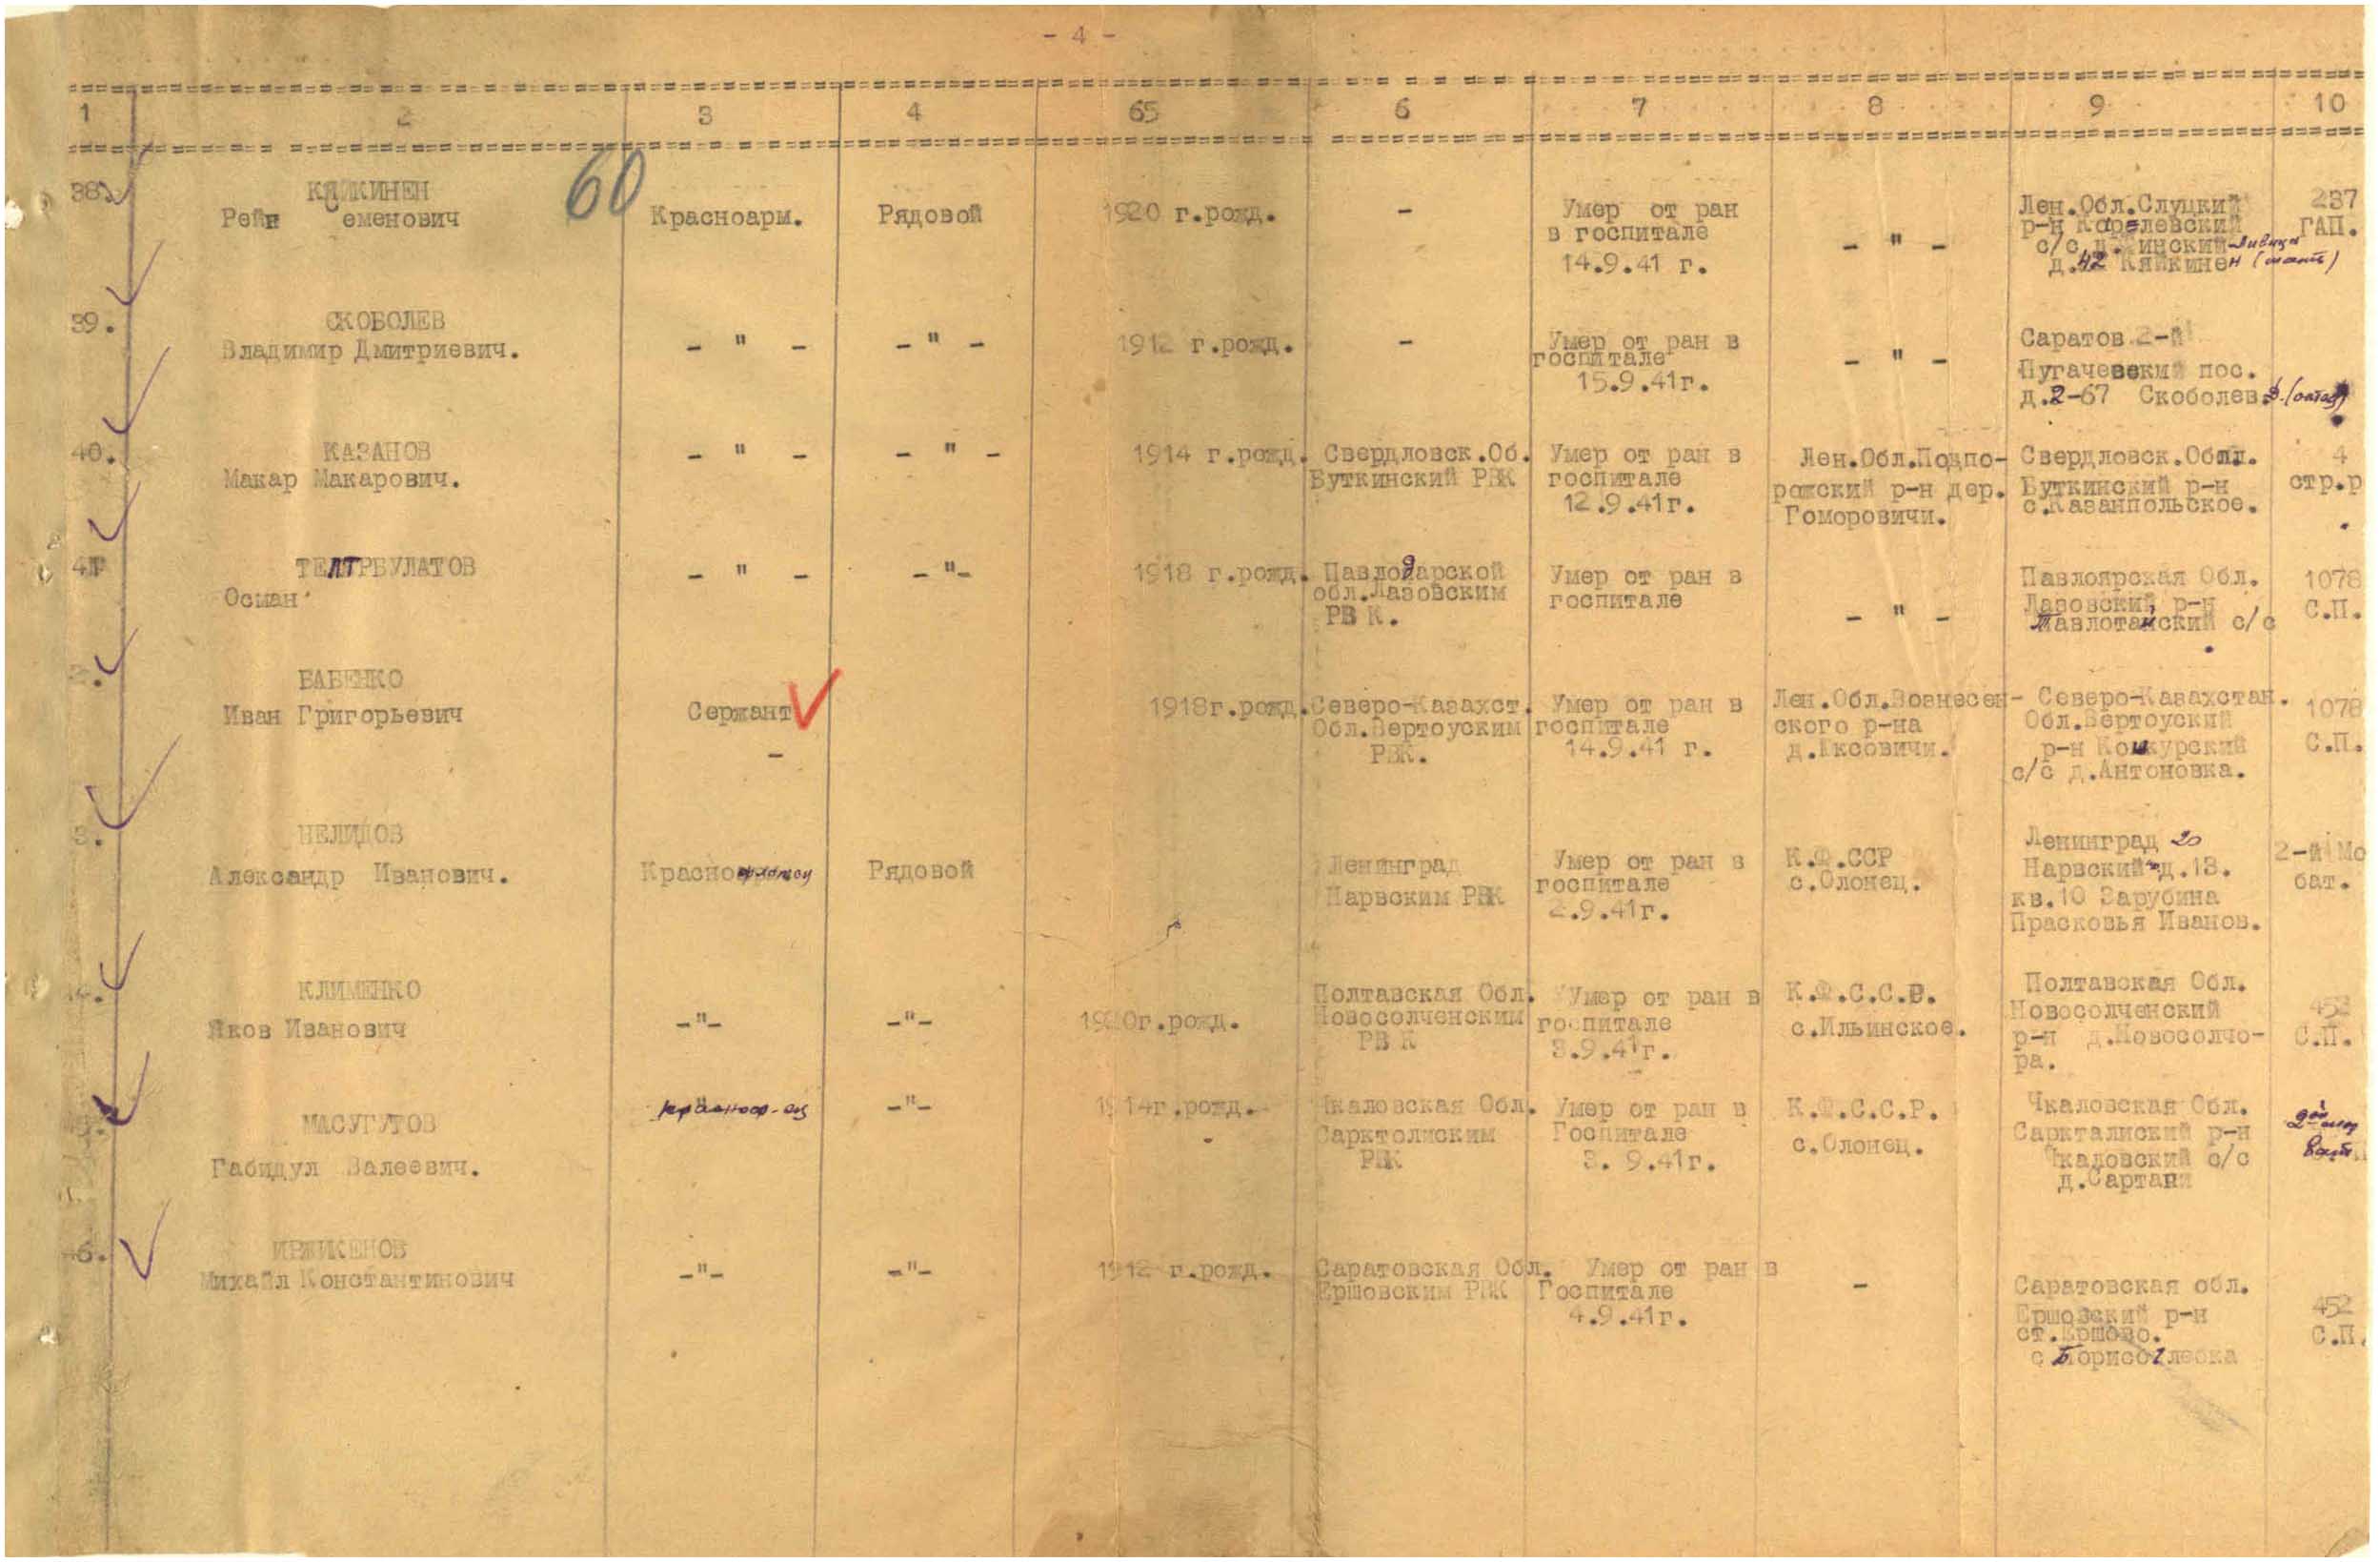 - 4 -
1 2 3 4 65 6 7 8 9 10
60
38.
КЯЙКИНЕН
Рейн Семенович
Красноарм.
Рядовой
1920 г.рожд.
-
Умер от ран
в госпитале
14.9.41 г.
- " -
Лен.Обл.Слуцкий
р-н Карелевский
с/с д. инский
д.42 Кяйкинен (мать)
237
ГАП.
39.
СКОБОЛЕВ
Владимир Дмитриевич.
- " -
- " -
1912 г.рожд.
-
Умер от ран в
госпитале
15.9.41г.
- " -
Саратов 2-й
Пугачевский пос.
д.2-67 Скоболев.Д.(отец)
40.
КАЗАНОВ
Макар Макарович.
- " -
- " -
1914 г.рожд.
Свердловск.Об.
Буткинский РВК
Умер от ран в
госпитале
12.9.41г.
Лен.Обл.Подпо-
рожский р-н дер.
Гоморовичи.
Свердловск.Обл.
Буткинский р-н
с.Казанпольское.
4
стр.р
.
41
ТЕЛТРБУЛАТОВ
Осман
- " -
- "-
1918 г.рожд.
Павлодарской
обл.Лазовским
РВ К.
Умер от ран в
госпитале
- " -
Павлоярская Обл.
Лазовский р-н
Павлотанский с/с
1078
С.П.
2.
БАБЕНКО
Иван Григорьевич
Сержант
-
1918г.рожд.
Северо-Казахст.
Обл.Вертоуским
РВК.
Умер от ран в
госпитале
14.9.41 г.
Лен.Обл.Вознесен-
ского р-на
д.Яксовичи.
Северо-Казахстан.
Обл.Вертоуский
р-н Кошкурский
с/с д.Антоновка.
1078
С.П.
3.
НЕЛИДОВ
Александр Иванович.
Красно
Рядовой
Ленинград
Нарвским РВК
Умер от ран в
госпитале
2.9.41г.
К.Ф.ССР
с.Олонец.
Ленинград 20
Нарвский д.13.
кв.10 Зарубина
Прасковья Иванов.
2-й Мо
бат.
4.
КЛИМЕНКО
Яков Иванович
-"-
-"-
1920г.рожд.
Полтавская Обл.
Новосолченским
РВ К
Умер от ран в
госпитале
3.9.41г.
К.Ф.С.С.Р.
с.Ильинское.
Полтавская Обл.
Новосолченский
р-н д.Новосолчо-
ра.
452
С.П.
5.
МАСУГУТОВ
Габидул Валеевич.
красноар-ец
-"-
1914г.рожд.
Чкаловская Обл.
Сарктолиским
РВК
Умер от ран в
Госпитале
3. 9.41г.
К.Ф.С.С.Р.
с.Олонец.
Чкаловская Обл.
Саркталиский р-н
Чкаловский с/с
д.Сартани
2ой мор
бат
46.
ИРЖИКЕНОВ
Михайл Константинович
-"-
-"-
1912 г.рожд.
Саратовская Обл.
Ершовским РВК
Умер от ран в
Госпитале
4.9.41г.
-
Саратовская обл.
Ершовский р-н
ст.Ершово.
с Борисоглебка
452
С.П.